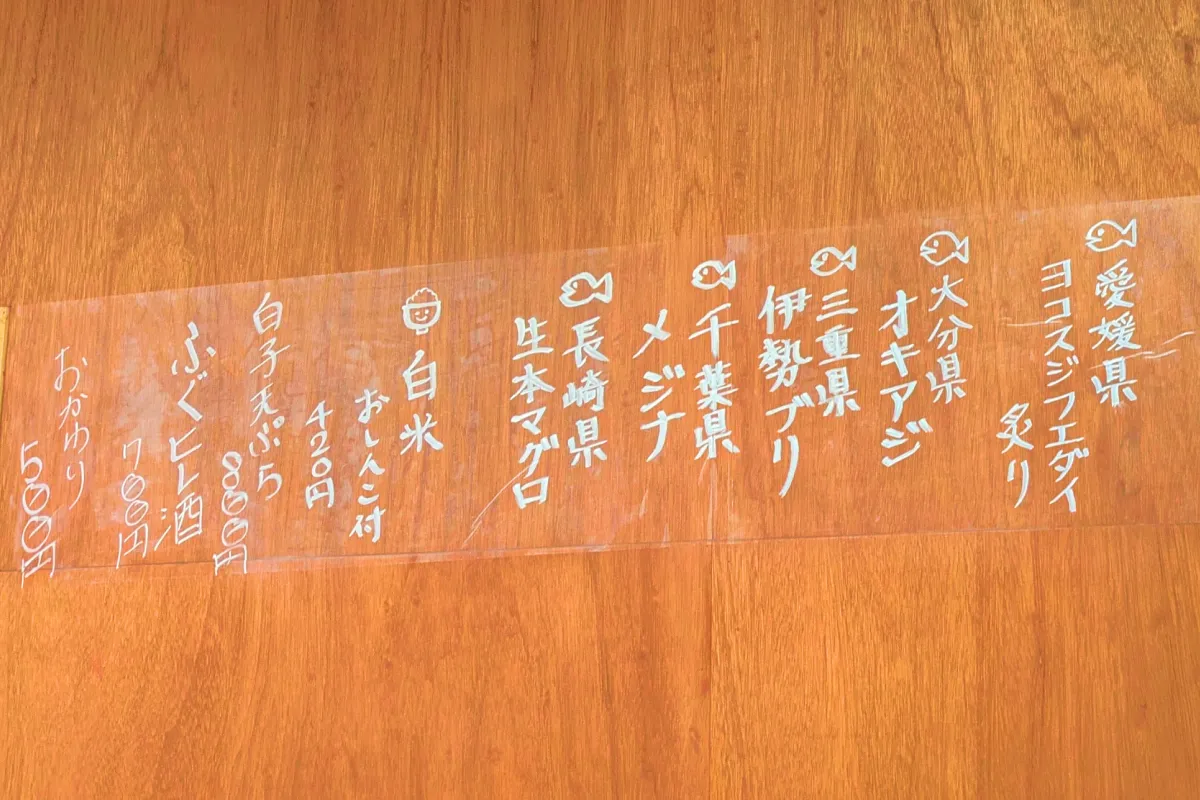 愛媛県
ヨコスジフエダイ
炙り
大分県
オキアジ
三重県
伊勢ブリ
千葉県
メジナ
長崎県
生本マグロ
白米
おしんこ付
420円
白子天ぷら
800円
ふぐヒレ酒
700円
おかゆり
500円